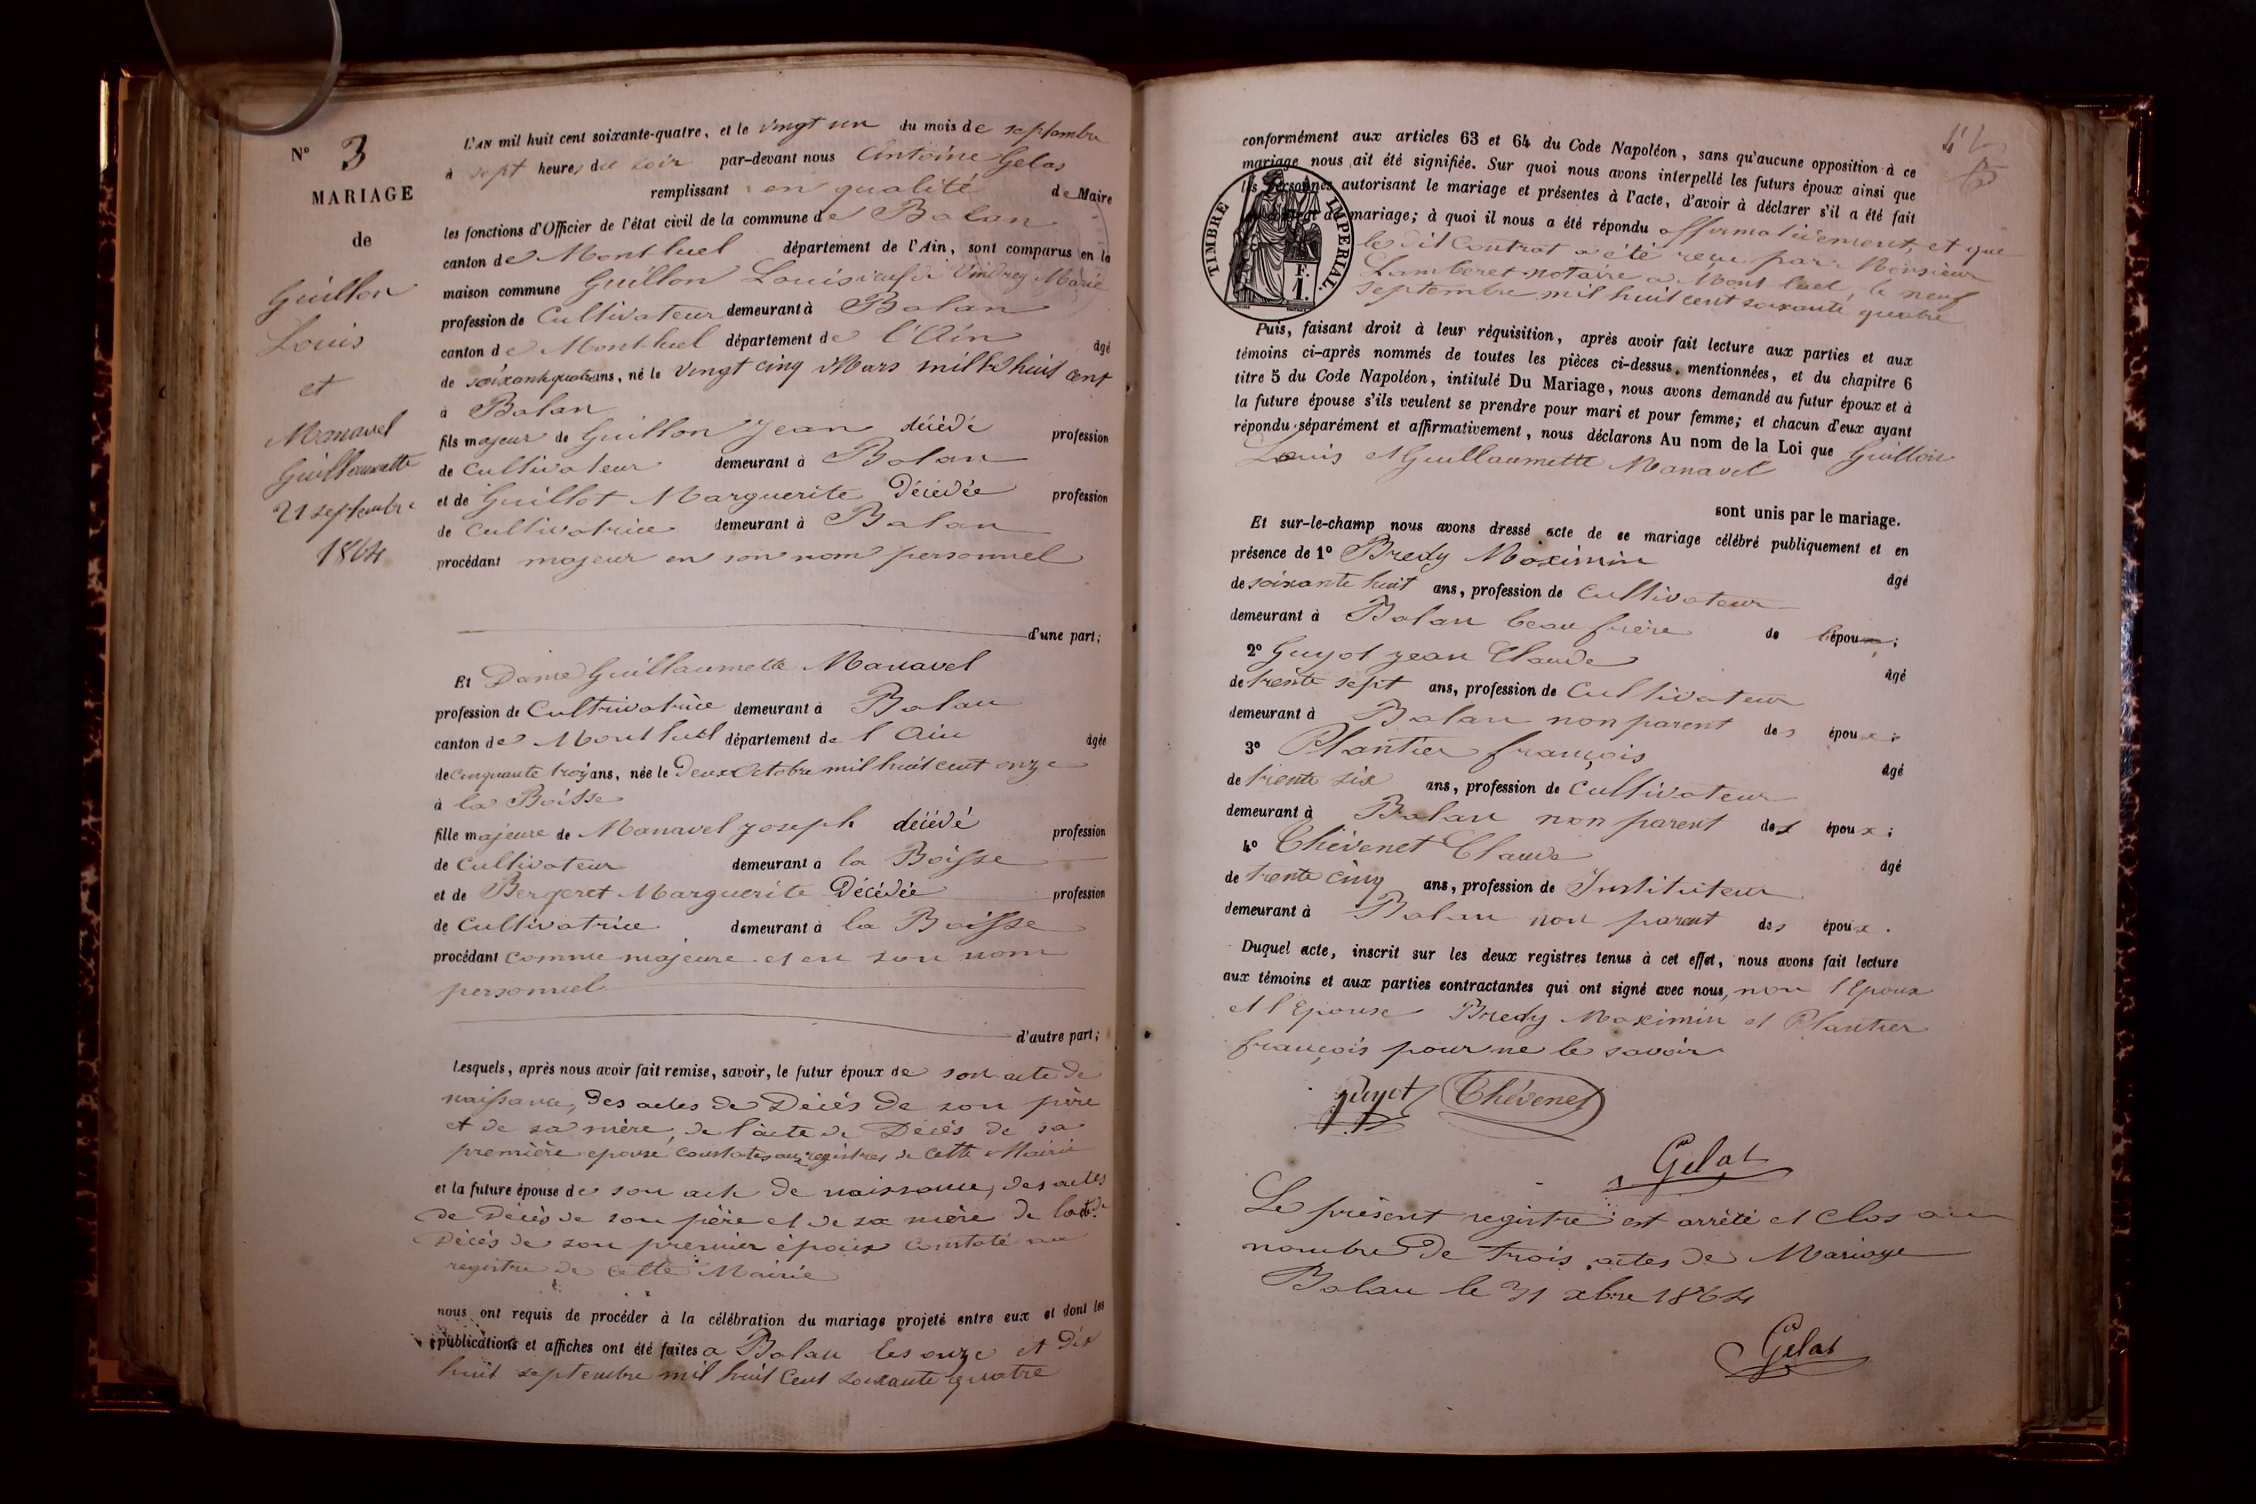 N° 3
MARIAGE
de
Guillon
Louis
et
Manavel
Guillaumette
21 septembre
1864
L'AN mil huit cent soixante-quatre, et le vingt un du mois de septembre
à sept heures du soir par-devant nous Antoine Gelas
remplissant en qualité de Maire
les fonctions d'Officier de l'état civil de la commune de Balan
canton de Montluel département de l'Ain, sont comparus en la
maison commune Guillon Louis veuf de Vindrey Marie
profession de Cultivateur demeurant à Balan
canton de Montluel département de l'Ain âgé
de soixante quatre ans, né le vingt cinq Mars mil huit cent
à Balan
fils majeur de Guillon Jean décédé profession
de cultivateur demeurant à Balan
et de Guillot Marguerite Décédée profession
de cultivatrice demeurant à Balan
procédant majeur en son nom personnel
d'une part;
Et Dame Guillaumette Manavel
profession de Cultrivatrice demeurant à Balan
canton de Montluel département de l'Ain âgée
de cinquante trois ans, née le Deux Octobre mil huit cent onze
à la Boisse
fille majeure de Manavel Joseph décédé profession
de Cultivateur demeurant à la Boisse
et de Bergeret Marguerite Décédée profession
de Cultivatrice demeurant à la Boisse
procédant comme majeure et en son nom
personnel
d'autre part;
Lesquels, après nous avoir fait remise, savoir, le futur époux de son acte de
naissance, Des actes de Décès de son père
et de sa mère, de l'acte de Décès de sa
première epouse constatés aux registres de cette Mairie
et la future épouse de son acte de naissance, des actes
de Décès de son père et de sa mère de l'acte de
Décès de son premier époux constaté au
registre de cette Mairie
nous ont requis de procéder à la célébration du mariage projeté entre eux et dont les
publications et affiches ont été faites a Balan les onze et Dix
huit septembre mil huit cent soixante quatre
conformément aux articles 63 et 64 du Code Napoléon, sans qu'aucune opposition à ce
mariage nous ait été signifiée. Sur quoi nous avons interpellé les futurs époux ainsi que
les personnes autorisant le mariage et présentes à l'acte, d'avoir à déclarer s'il a été fait
de mariage; à quoi il nous a été répondu affirmativement, et que
le dit Contrat a été reçu par Monsieur
Lamberet notaire a Montluel, le neuf
septembre mil huit cent soixante quatre
TIMBRE IMPERIAL.
F.
1.
Puis, faisant droit à leur réquisition, après avoir fait lecture aux parties et aux
témoins ci-après nommés de toutes les pièces ci-dessus mentionnées, et du chapitre 6
titre 5 du Code Napoléon, intitulé Du Mariage, nous avons demandé au futur époux et à
la future épouse s'ils veulent se prendre pour mari et pour femme; et chacun d'eux ayant
répondu séparément et affirmativement, nous déclarons Au nom de la Loi que Guillon
Louis et Guillaumette Manavel
sont unis par le mariage.
Et sur-le-champ nous avons dressé acte de ce mariage célébré publiquement et en
présence de 1° Bredy Maximin âgé
de soixante huit ans, profession de Cultivateur
demeurant à Balan beau frère de l'époux;
2° Guyot Jean Claude âgé
de trente sept ans, profession de Cultivateur
demeurant à Balan non parent des époux;
3° Plantier françois âgé
de trente six ans, profession de Cultivateur
demeurant à Balan non parent des époux;
4° Thévenet Claude âgé
de trente cinq ans, profession de Instituteur
demeurant à Balan non parent des époux.
Duquel acte, inscrit sur les deux registres tenus à cet effet, nous avons fait lecture
aux témoins et aux parties contractantes qui ont signé avec nous, non l'Epoux
et l'Epouse Bredy Maximin et Plantier
françois pour ne le savoir
Guyot Thévenet
Gelas
Le présent registre est arrêté et clos au
nombre de trois actes de Mariage
Balan le 31 xbre 1864
Gelas